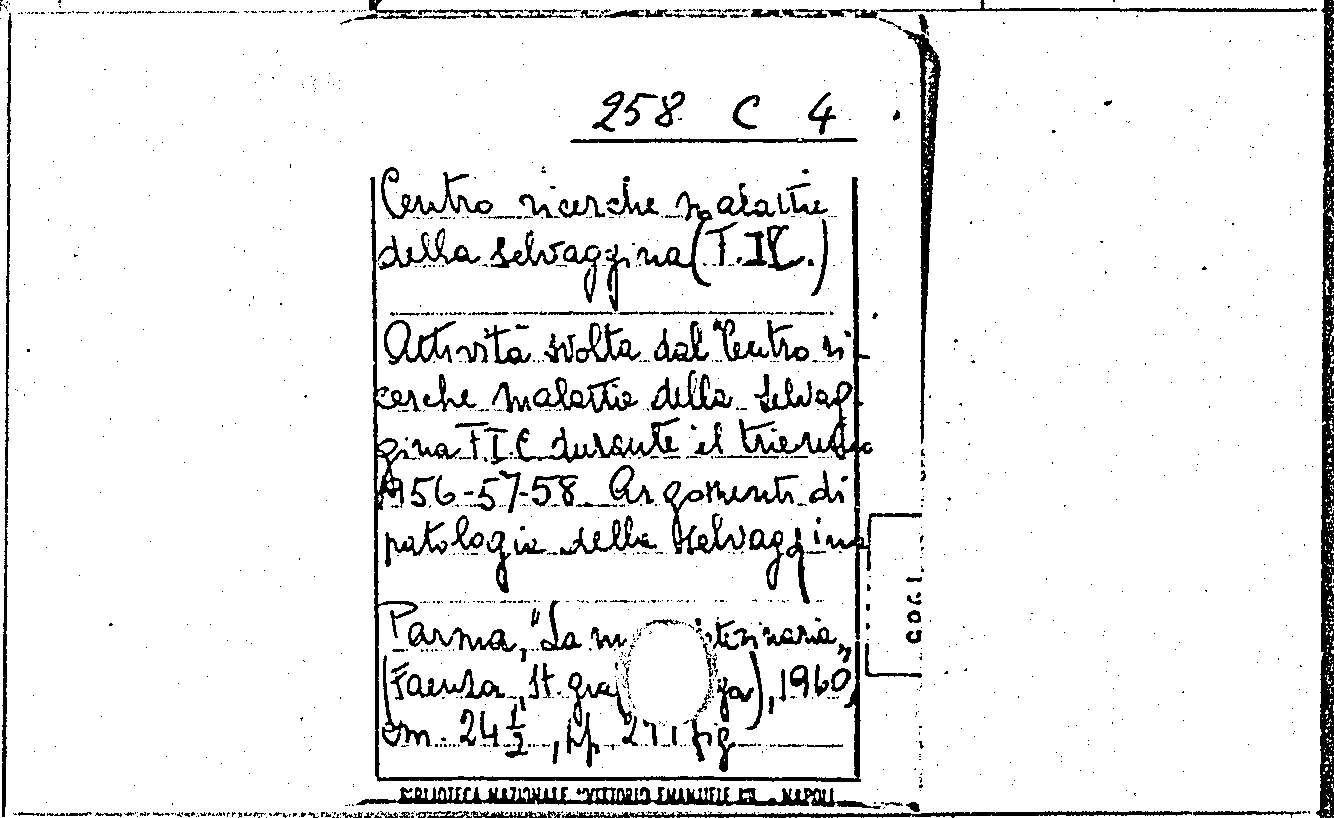 258 C 4
Centro ricerche malattie
della selvaggina (F.I.C.)
Attività svolta dal "Centro ri-
cerche malattie della selvag-
gina F.I.C durante il triennio
1956-57-58. Argomenti di
patologia della selvaggina
Parma, "La veterinaria„
(Faenza, St. gra ga), 1960,
cm. 24 1/2, pp. fig
BIBLIOTECA NAZIONALE "VITTORIO EMANUELE III" - NAPOLI